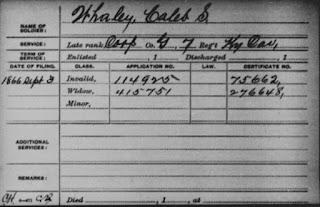 NAME OF SOLDIER: Whaley, Caleb S.
SERVICE: Late rank Corp Co. G 7 Reg't Ky Cav,
TERM OF SERVICE: Enlisted 1 Discharged 1
DATE OF FILING. CLASS. APPLICATION NO. LAW. CERTIFICATE NO.
1866 Sept 3 Invalid, 114925 75662,
Widow, 415751 276648,
Minor,
ADDITIONAL SERVICES:
REMARKS:
Died , 1 , at